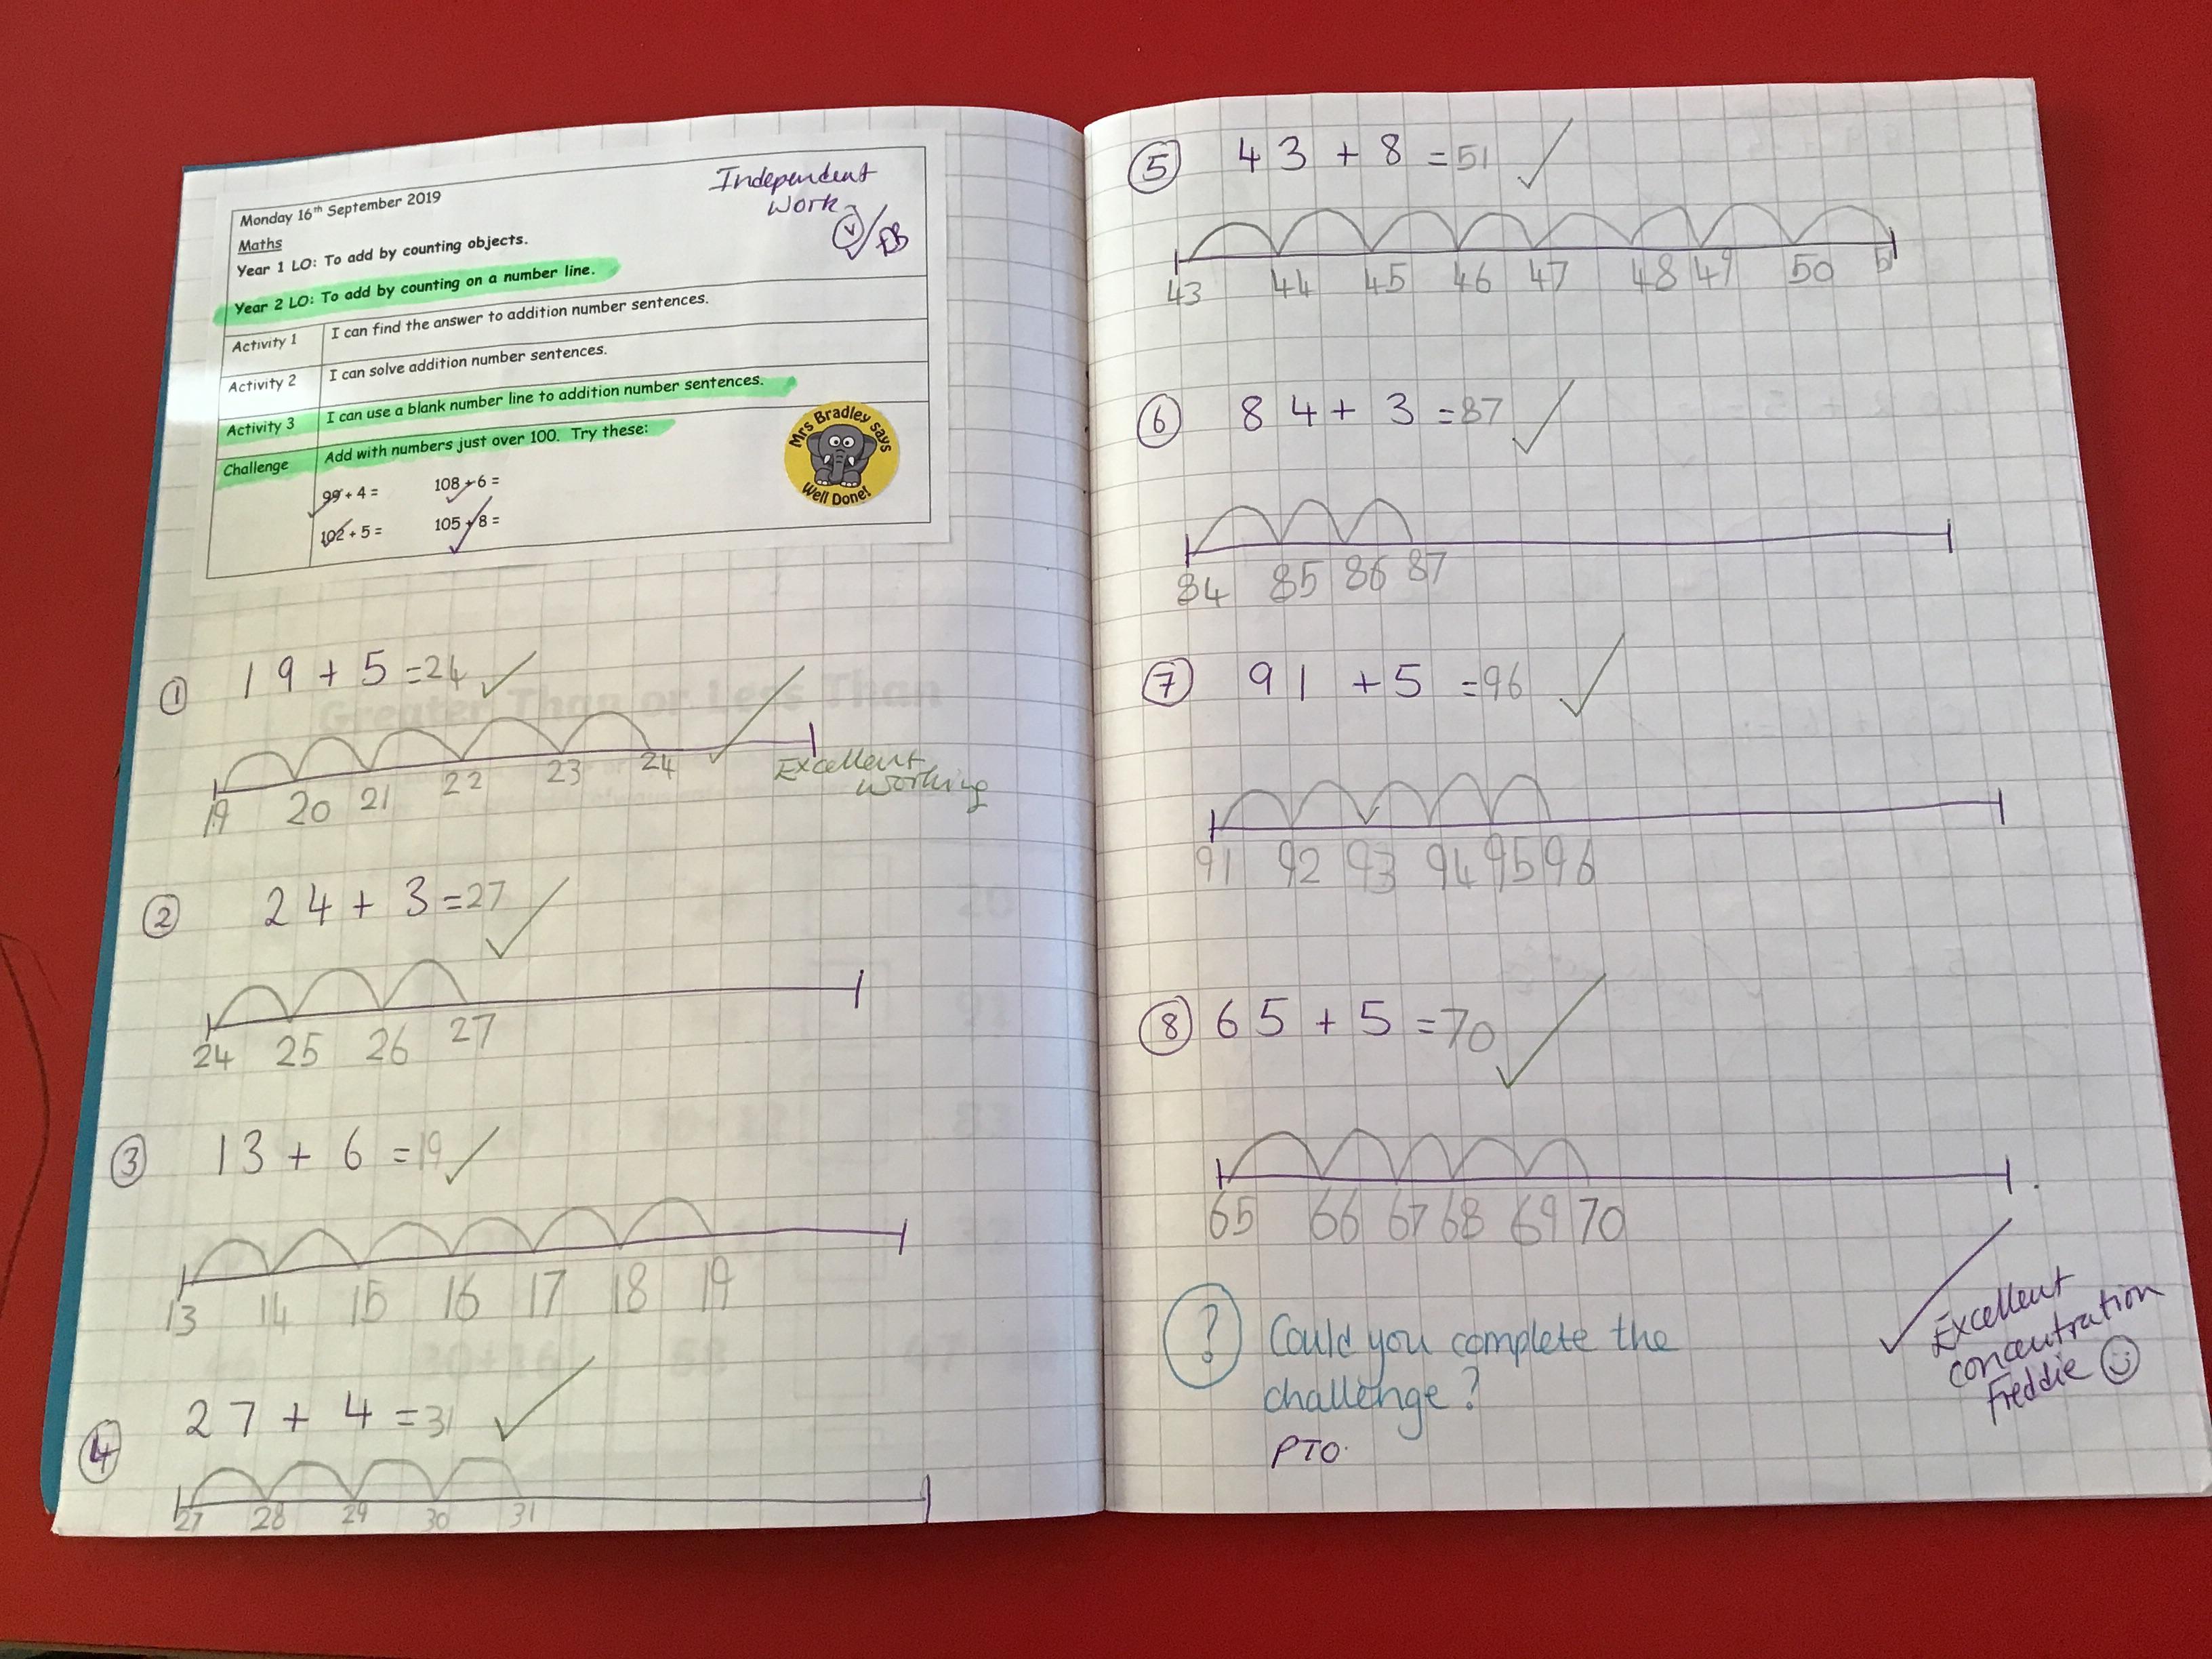 Monday 16th September 2019
Independent
Work
Maths
Year 1 LO: To add by counting objects.
Year 2 LO: To add by counting on a number line.
Activity 1 I can find the answer to addition number sentences.
Activity 2 I can solve addition number sentences.
Activity 3 I can use a blank number line to addition number sentences.
Challenge Add with numbers just over 100. Try these:
99 + 4 = 108 + 6 =
102 + 5 = 105 + 8 =
Mrs Bradley says
Well Done!
1 19 + 5 = 24
19 20 21 22 23 24
Excellent
working
2 24 + 3 = 27
24 25 26 27
3 13 + 6 = 19
13 14 15 16 17 18 19
4 27 + 4 = 31
27 28 29 30 31
5 43 + 8 = 51
43 44 45 46 47 48 49 50 51
6 84 + 3 = 87
84 85 86 87
7 91 + 5 = 96
91 92 93 94 95 96
8 65 + 5 = 70
65 66 67 68 69 70
? Could you complete the
challenge?
PTO.
Excellent
concentration
Freddie